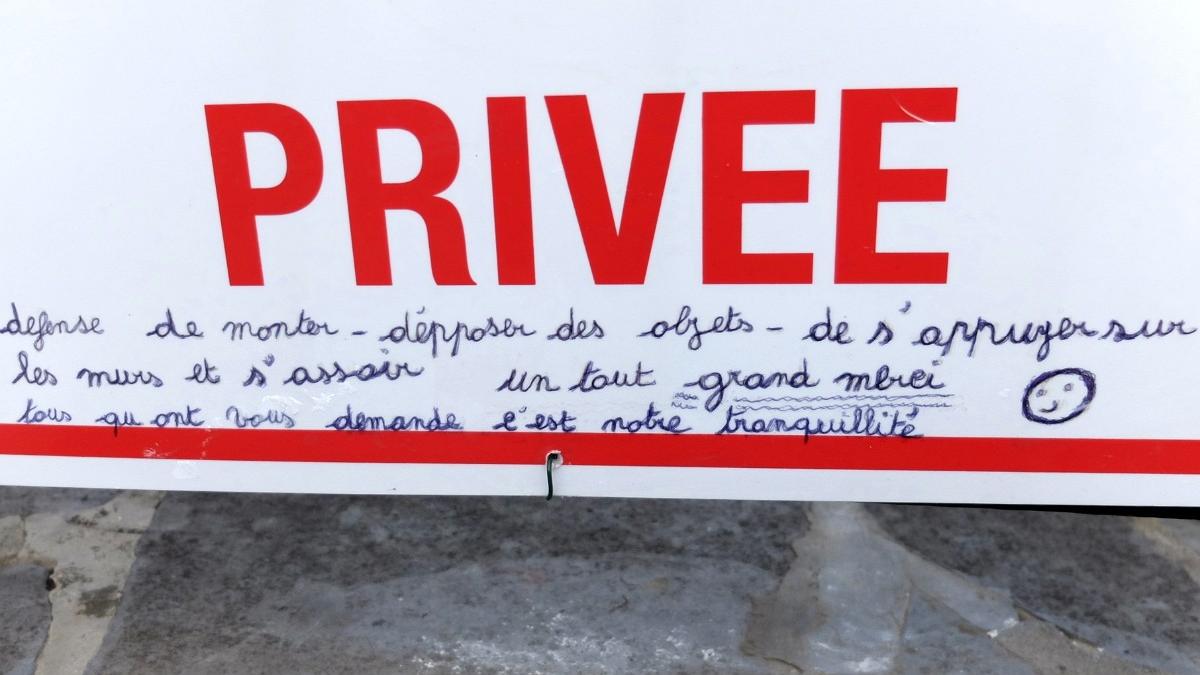 PRIVEE
defense de monter - dépposer des objets - de s'appuyer sur
les murs et s'assoir un tout grand merci
tous qu ont vous demande c'est notre tranquillité